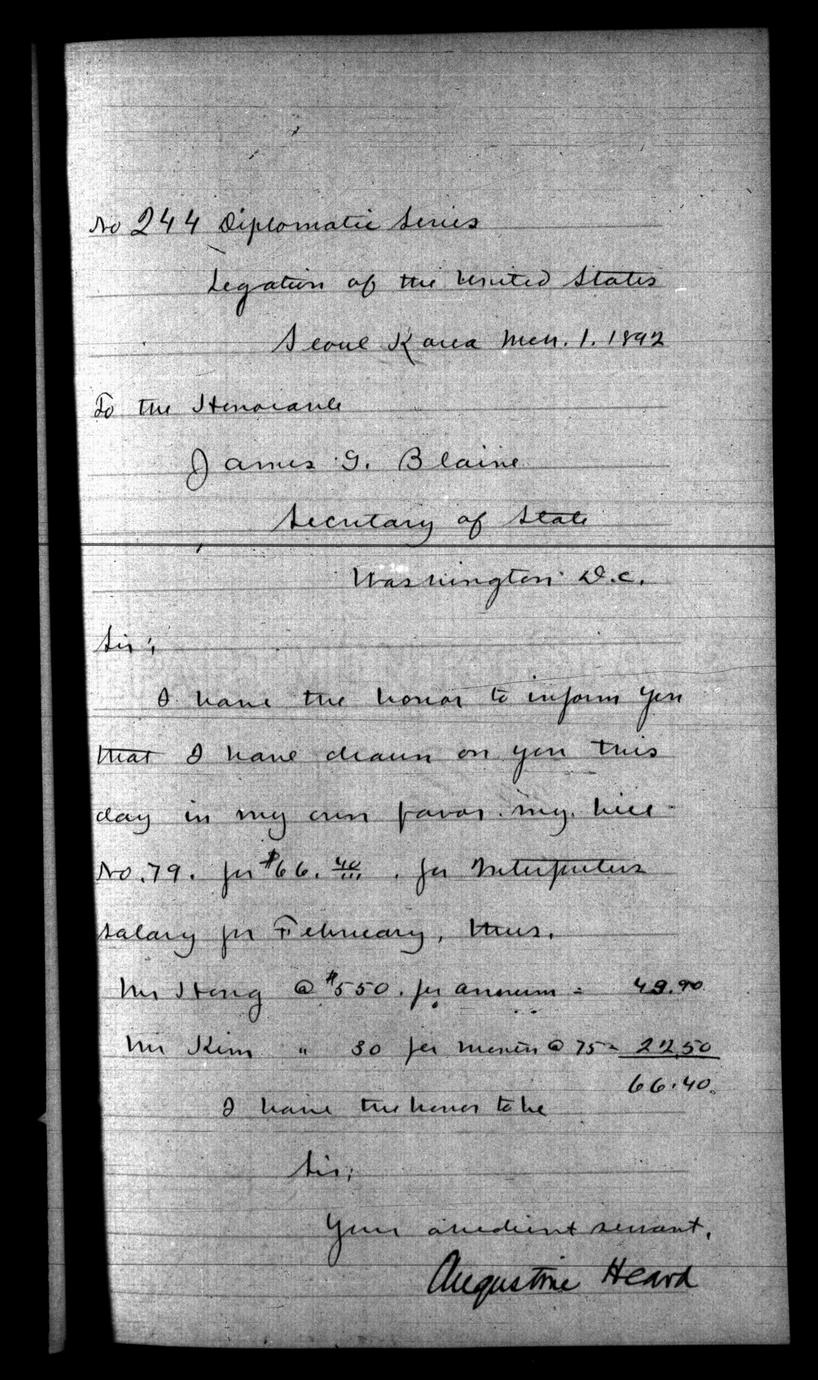 No 244 Diplomatic Series
Legation of the United States
Seoul Korea Mch. 1. 1892
To the Honorable
James G. Blaine
Secretary of State
Washington D.C.
Sir;
I have the honor to inform you
that I have drawn on you this
day in my own favor my bill
No. 79. for $66. 40/ . for Interpreters
salary for February, thus.
Mr Hong @ $550. per annum = 43.90
Mr Kim " 30 per month @ 75 = 22.50
66.40.
I have the honor to be
Sir;
Your obedient servant,
Augustine Heard